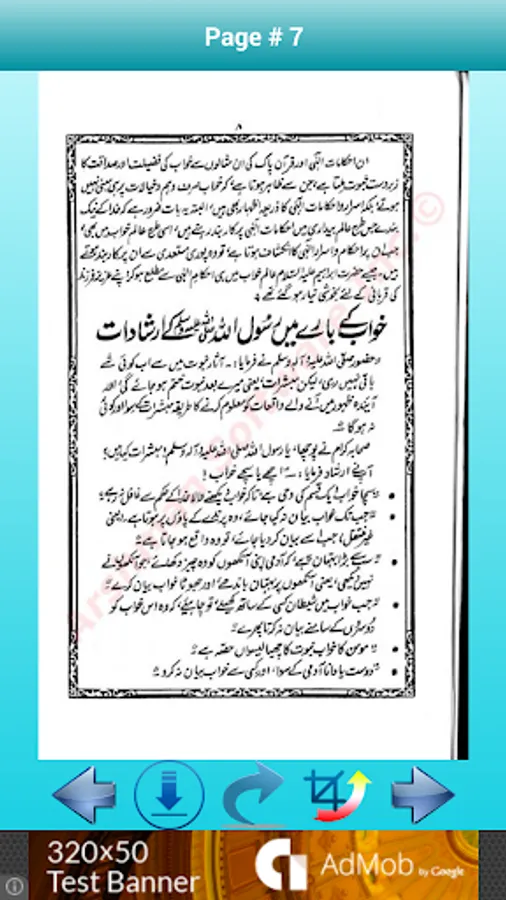 Page # 7
۸
ان احکامات الٰہی اور قرآن پاک کی ان مثالوں سے خواب کی فضیلت اور صداقت کا
زبردست ثبوت ملتا ہے، جن سے ظاہر ہوتا ہے، کہ خواب صرف وہم و خیالات پر ہی مبنی نہیں
ہوتے، بلکہ اسرار و احکامات الٰہی کا ذریعۂ اظہار بھی ہیں، البتہ یہ بات ضرور ہے کہ خدا کے نیک
بندے جس طرح عالم بیداری میں احکامات الٰہی پر کاربند رہتے ہیں، اسی طرح عالم خواب میں بھی،
جب ان پر احکام و اسرار الٰہی کا انکشاف ہوتا ہے، تو وہ پوری مستعدی سے ان پر کاربند ہوتے
ہیں۔ جیسے حضرت ابراہیم علیہ السلام عالم خواب میں ہی احکام الٰہی سے مطلع ہو کر اپنے عزیز فرزند
کی قربانی کے لئے بخوشی تیار ہو گئے تھے
خواب کے بارے میں رسول اللہ صلی اللہ علیہ وسلم کے ارشادات
حضور صلی اللہ علیہ وآلہ وسلم نے فرمایا:۔ آثار نبوت میں سے اب کوئی شے
باقی نہیں رہی، لیکن مبشرات، یعنی میرے بعد نبوت ختم ہو جائے گی، اور
آئندہ ظہور میں آنے والے واقعات کو معلوم کرنے کا طریقہ مبشرات کے سوا اور کوئی
نہ ہو گا
صحابہ کرام نے پوچھا، یا رسول اللہ صلی اللہ علیہ وآلہ وسلم! مبشرات کیا ہیں؟
آپ نے ارشاد فرمایا:۔ اچھے یا سچے خواب!
• سچا خواب ایک قسم کی وحی ہے، تاکہ خواب دیکھنے والا خدا کے حکم سے غافل نہ رہے
• جب تک خواب بیان نہ کیا جائے، وہ پرندے کے پاؤں پر ہوتا ہے، یعنی
غیر مستقل، جب اسے بیان کر دیا جائے، تو وہ واقع ہو جاتا ہے
• سب سے بڑا بہتان یہ ہے، کہ آدمی اپنی آنکھوں کو وہ چیز دکھائے، جو آنکھوں نے
نہیں دیکھی، یعنی آنکھوں پر بہتان باندھے، اور جھوٹا خواب بیان کرے
• جب خواب میں شیطان کسی کے ساتھ کھیلے، تو چاہئے، کہ وہ اس خواب کو
دوسروں کے سامنے بیان نہ کرتا پھرے
• مومن کا خواب نبوت کا چھیالیسواں حصہ ہے
• دوست یا دانا آدمی کے سوا، اور کسی سے خواب بیان نہ کرو
320×50
Test Banner
AdMob by Google